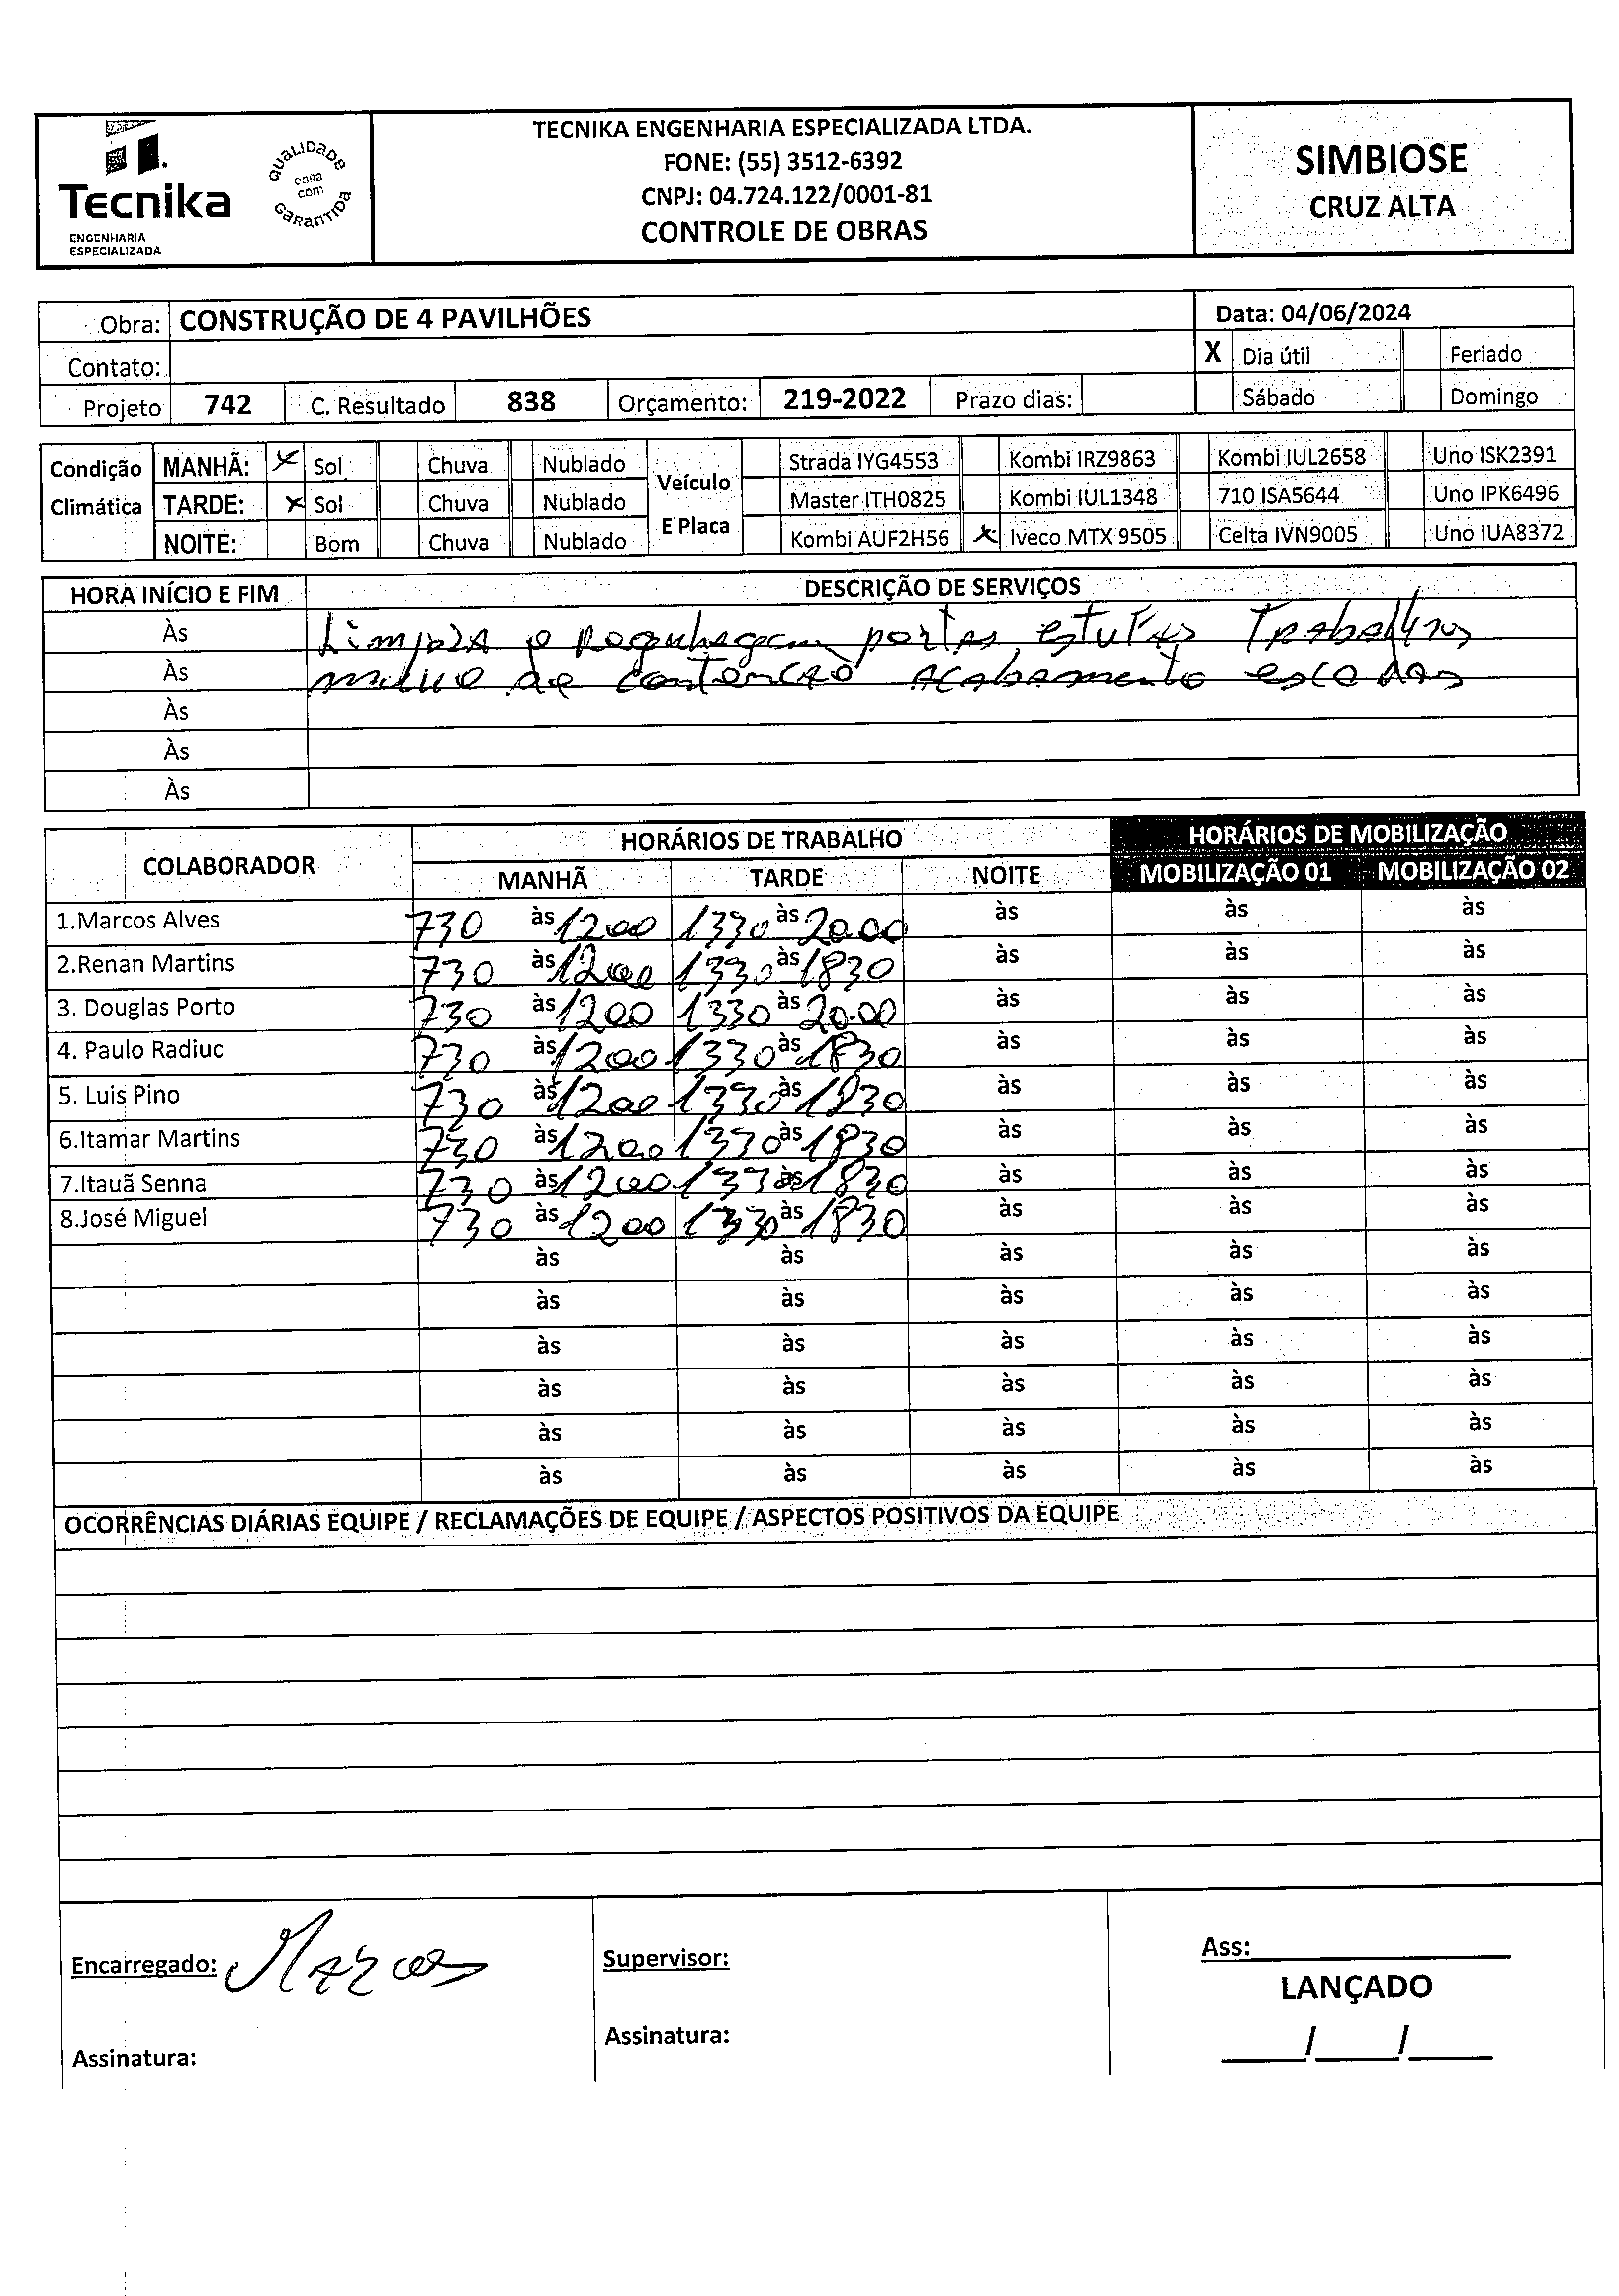 Tecnika
ENGENHARIA
ESPECIALIZADA
QUALIDADE
COM
GARANTIDA
TECNIKA ENGENHARIA ESPECIALIZADA LTDA.
FONE: (55) 3512-6392
CNPJ: 04.724.122/0001-81
CONTROLE DE OBRAS
SIMBIOSE
CRUZ ALTA
Obra: CONSTRUÇÃO DE 4 PAVILHÕES Data: 04/06/2024
Contato: X Dia útil Feriado
Projeto 742 C. Resultado 838 Orçamento: 219-2022 Prazo dias: Sábado Domingo
Condição MANHÃ: X Sol Chuva Nublado Veículo Strada IYG4553 Kombi IRZ9863 Kombi IUL2658 Uno ISK2391
Climática TARDE: X Sol Chuva Nublado E Placa Master ITH0825 Kombi IUL1348 710 ISA5644 Uno IPK6496
NOITE: Bom Chuva Nublado Kombi AUF2H56 X Iveco MTX 9505 Celta IVN9005 Uno IUA8372
HORA INÍCIO E FIM DESCRIÇÃO DE SERVIÇOS
Às Limpeza e portas
Às de contenção acabamento escadas
Às
Às
Às
COLABORADOR HORÁRIOS DE TRABALHO HORÁRIOS DE MOBILIZAÇÃO
MANHÃ TARDE NOITE MOBILIZAÇÃO 01 MOBILIZAÇÃO 02
1.Marcos Alves 730 às 1200 1330 às 20.00 às às às
2.Renan Martins 730 às 1200 1330 às 1830 às às às
3. Douglas Porto 730 às 1200 1330 às 20.00 às às às
4. Paulo Radiuc 730 às 1200 1330 às 1830 às às às
5. Luis Pino 730 às 1200 1330 às 1830 às às às
6.Itamar Martins 730 às 1200 1330 às 1830 às às às
7.Itauã Senna 730 às 1200 1330 às 1830 às às às
8.José Miguel 730 às 1200 1330 às 1830 às às às
às às às às às
às às às às às
às às às às às
às às às às às
às às às às às
às às às às às
OCORRÊNCIAS DIÁRIAS EQUIPE / RECLAMAÇÕES DE EQUIPE / ASPECTOS POSITIVOS DA EQUIPE
Encarregado: Marcos Supervisor: Ass:
LANÇADO
Assinatura: Assinatura: / /